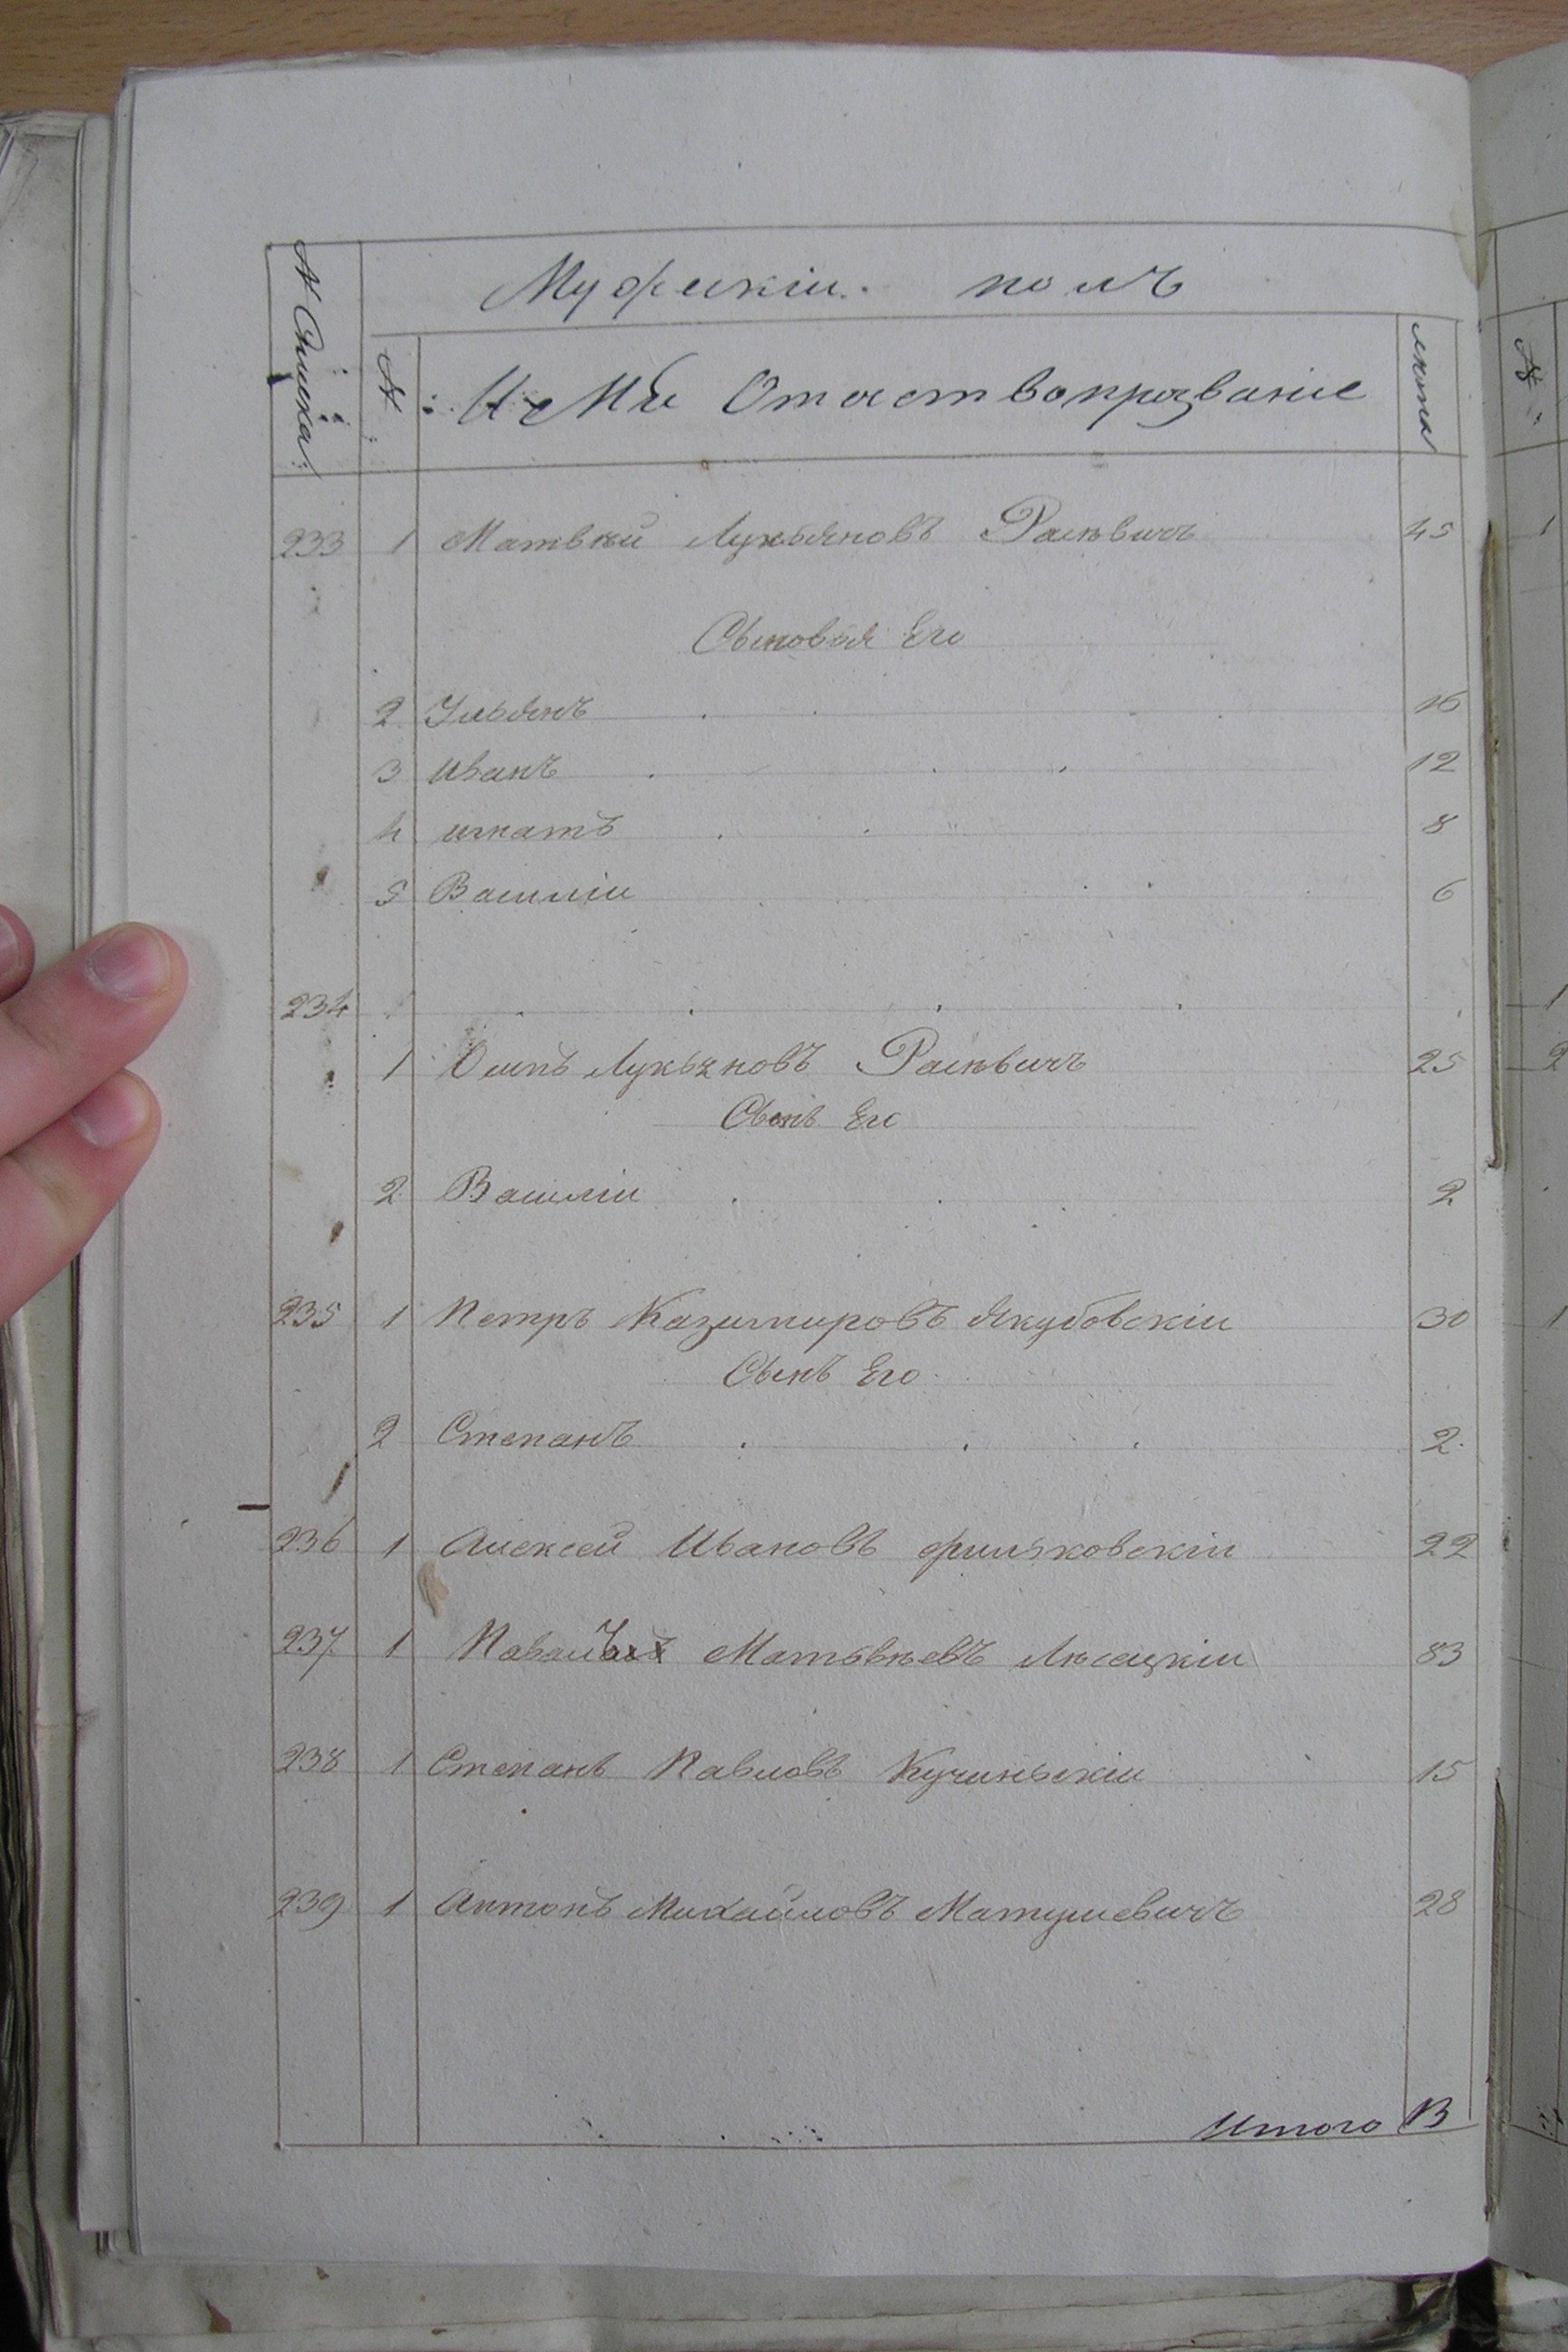 Мужескіи полъ
№ Списка
№
Имя Отечество прозваніе
лета
233 1 Матвѣй Лукьяновъ Расѣвичъ 45
Сыновья Его
2 Ульянъ 16
3 Иванъ 12
4 игнатъ 8
5 Василіи 6
234
1 Осипъ Лукьяновъ Расѣвичъ 25
Сынъ Его
2 Василіи 2
235 1 Петръ Казимировъ Якубовскіи 30
Сынъ Его
2 Степанъ 2
236 1 Алексей Ивановъ 22
237 1 Матьвѣевъ Лѣсецкіи 83
238 1 Степанъ Павловъ Кучиньскіи 15
239 1 Антонъ Михайловъ Матушевичъ 28
Итого 13